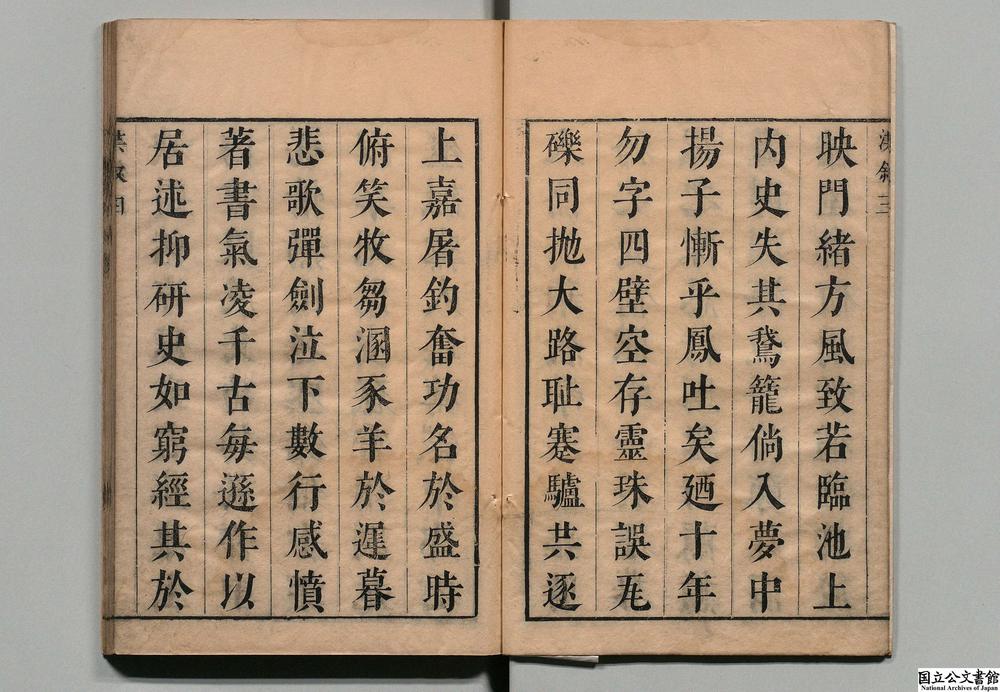 映門緒方風致若臨池上
内史失其鵞籠倘入夢中
揚子慚乎鳳吐矣廼十年
勿字四壁空存靈珠誤死
礫同抛大路耻蹇驢共逐
上嘉屠釣奮功名於盛時
俯笑牧芻溷豕羊於遲暮
悲歌彈劍泣下數行感憤
著書氣凌千古每遜作以
居述抑研史如窮經其於
国立公文書館
National Archives of Japan